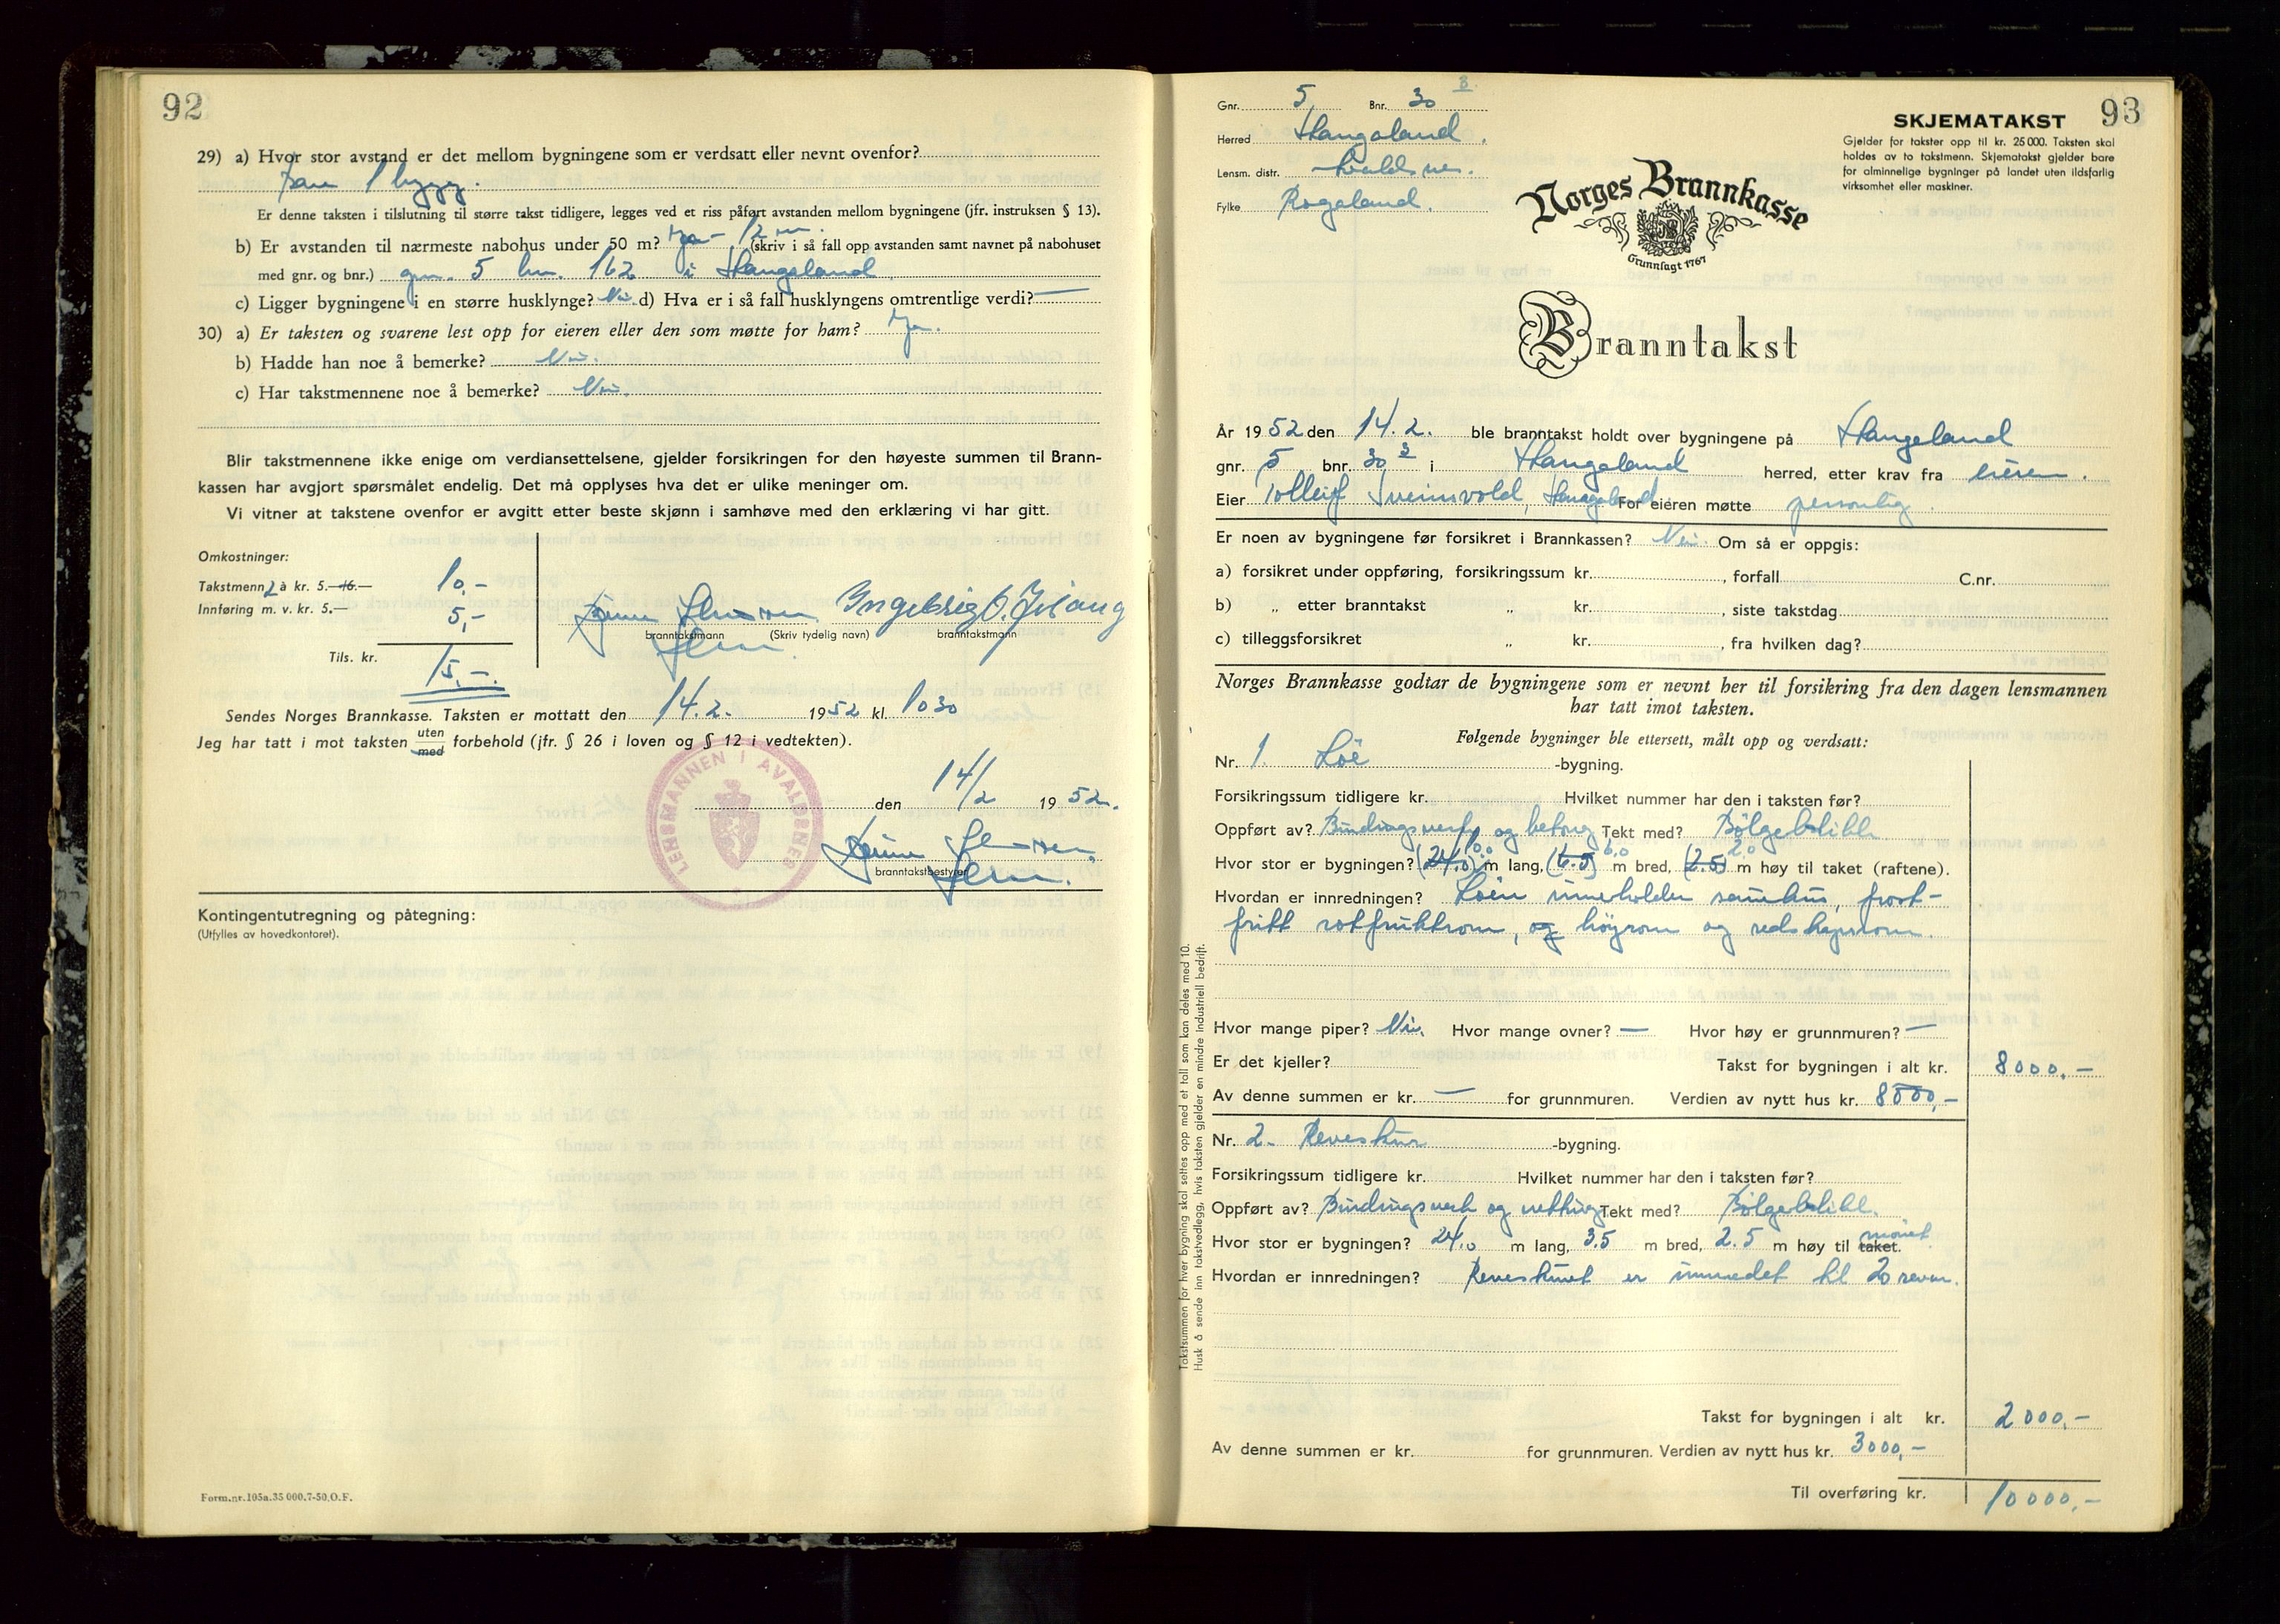 92
29) a) Hvor stor avstand er det mellom bygningene som er verdsatt eller nevnt ovenfor?
bare 1 bygg.
Er denne taksten i tilslutning til større takst tidligere, legges ved et riss påført avstanden mellom bygningene (jfr. instruksen § 13).
b) Er avstanden til nærmeste nabohus under 50 m? Ja - 12 m. (skriv i så fall opp avstanden samt navnet på nabohuset
med gnr. og bnr.) gnr. 5 bnr. 162 i Haugaland
c) Ligger bygningene i en større husklynge? Nei. d) Hva er i så fall husklyngens omtrentlige verdi? —
30) a) Er taksten og svarene lest opp for eieren eller den som møtte for ham? Ja.
b) Hadde han noe å bemerke? Nei.
c) Har takstmennene noe å bemerke? Nei.
Blir takstmennene ikke enige om verdiansettelsene, gjelder forsikringen for den høyeste summen til Brann-
kassen har avgjort spørsmålet endelig. Det må opplyses hva det er ulike meninger om.
Vi vitner at takstene ovenfor er avgitt etter beste skjønn i samhøve med den erklæring vi har gitt.
Omkostninger:
Takstmenn 2 à kr. 5.—16.— 10,-
Innføring m. v. kr. 5.— 5,-
Tils. kr. 15,-.
Ingebrig O.
branntakstmann (Skriv tydelig navn) branntakstmann
Sendes Norges Brannkasse. Taksten er mottatt den 14.2. 1952 kl. 1030
Jeg har tatt i mot taksten uten med forbehold (jfr. § 26 i loven og § 12 i vedtekten).
LENSMANNEN I AVALDSNES
den 14/2 1952.
branntakstbestyrer
Kontingentutregning og påtegning:
(Utfylles av hovedkontoret).
Form.nr.105a.35 000.7-50.O.F.
93
Gnr. 5, Bnr. 30 B.
Herred Haugaland.
Lensm. distr. Avaldsnes.
Fylke Rogaland.
SKJEMATAKST
Gjelder for takster opp til kr. 25 000. Taksten skal
holdes av to takstmenn. Skjematakst gjelder bare
for alminnelige bygninger på landet uten ildsfarlig
virksomhet eller maskiner.
Norges Brannkasse
Grunnlagt 1767
Branntakst
År 1952 den 14.2. ble branntakst holdt over bygningene på Haugaland
gnr. 5 bnr. 30 i Haugaland herred, etter krav fra eieren.
Eier Tolleif Sveinsvold, Haugaland. For eieren møtte personlig.
Er noen av bygningene før forsikret i Brannkassen? Nei. Om så er oppgis:
a) forsikret under oppføring, forsikringssum kr. , forfall C.nr.
b) „ etter branntakst „ kr. , siste takstdag
c) tilleggsforsikret „ kr. , fra hvilken dag?
Norges Brannkasse godtar de bygningene som er nevnt her til forsikring fra den dagen lensmannen
har tatt imot taksten.
Følgende bygninger ble ettersett, målt opp og verdsatt:
Nr. 1. Löe -bygning.
Forsikringssum tidligere kr. Hvilket nummer har den i taksten før?
Oppført av? Bindingsverk og betong Tekt med? Bölgeblikk
Hvor stor er bygningen? (24,0) 10.0 m lang, (6.5) 6,0 m bred, (2.5) 2.0 m høy til taket (raftene).
Hvordan er innredningen? Löen inneholder sauehus, frost-
fritt rotfruktrom, og höyrom og redskapsrom.
Hvor mange piper? Nei. Hvor mange ovner? — Hvor høy er grunnmuren? —
Er det kjeller? Takst for bygningen i alt kr. 8000,-
Av denne summen er kr. — for grunnmuren. Verdien av nytt hus kr. 8000,-
Nr. 2. Reveskur -bygning.
Forsikringssum tidligere kr. Hvilket nummer har den i taksten før?
Oppført av? Bindingsverk og netting Tekt med? Bölgeblikk.
Hvor stor er bygningen? 24,0 m lang, 3.5 m bred, 2.5 m høy til taket. mönet
Hvordan er innredningen? Reveskuret er innredet til 20 rever.
Takst for bygningen i alt kr. 2000,-
Av denne summen er kr. for grunnmuren. Verdien av nytt hus kr. 3000,-
Til overføring kr. 10000,-
Takstsummen for hver bygning skal settes opp med et tall som kan deles med 10.
Husk å sende inn takstvedlegg, hvis taksten gjelder en mindre industriell bedrift.